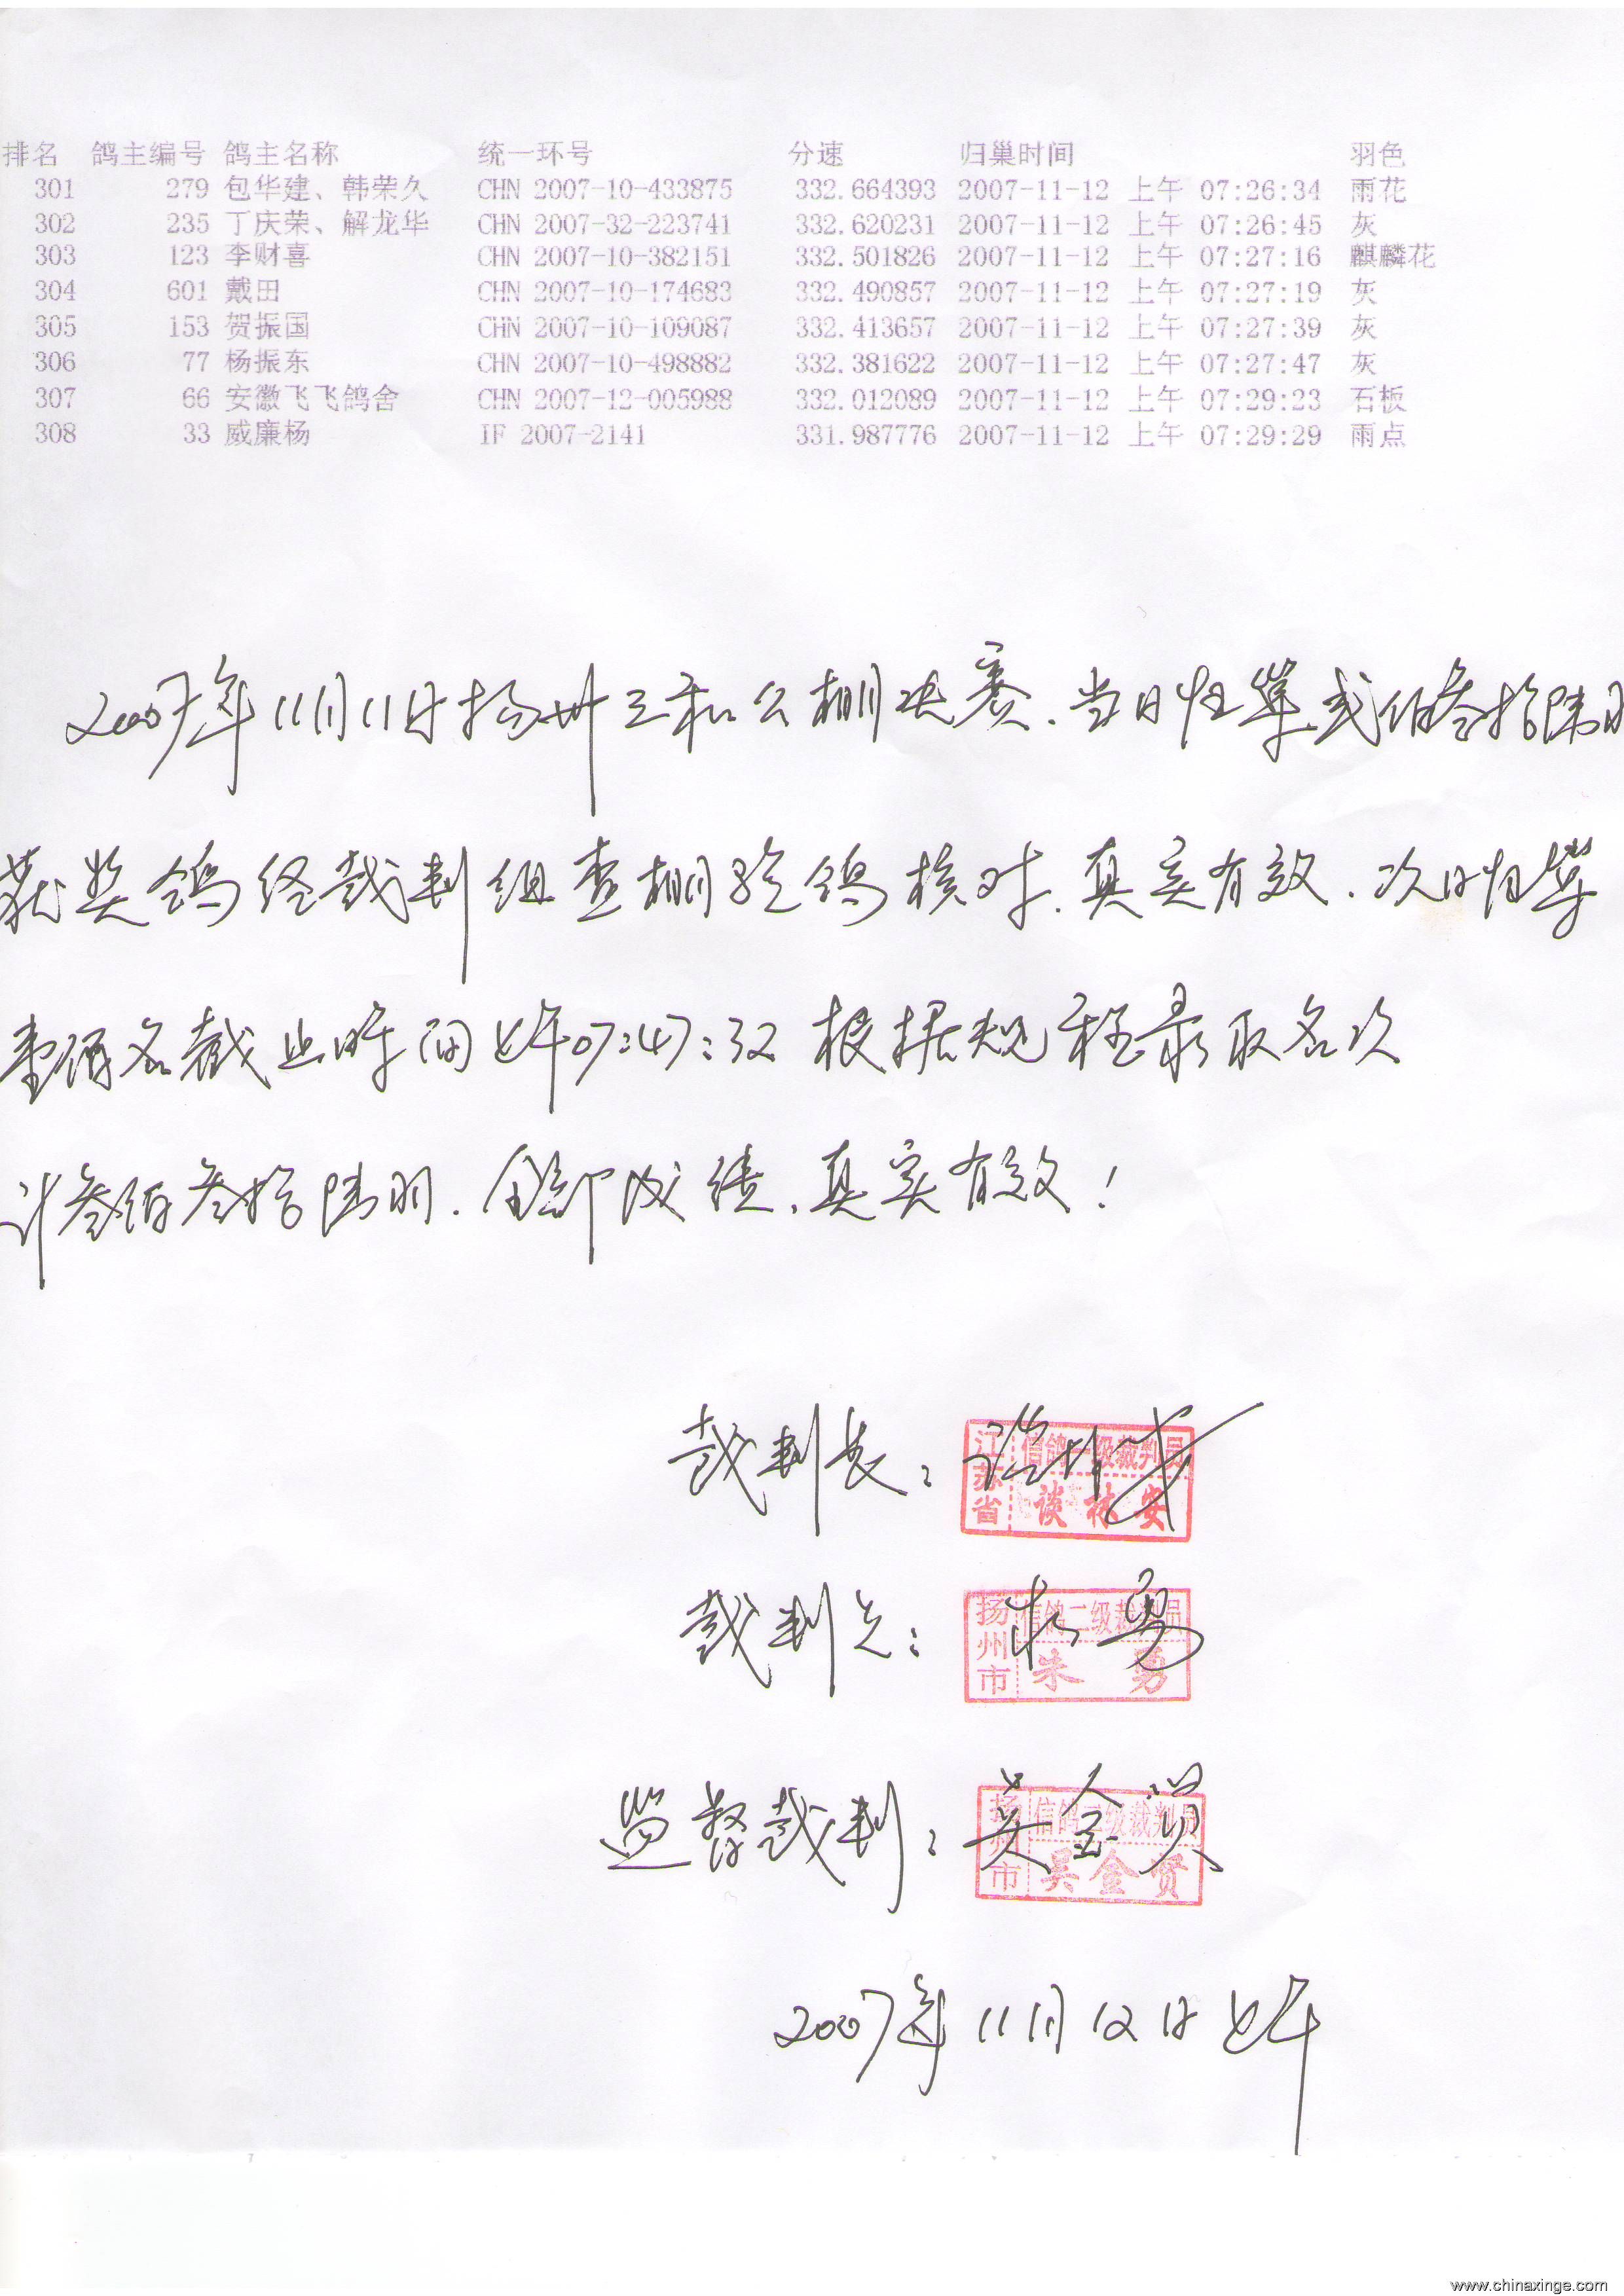 排名 鸽主编号 鸽主名称 统一环号 分速 归巢时间 羽色
301 279 包华建、韩荣久 CHN 2007-10-433875 332.664393 2007-11-12 上午 07:26:34 雨花
302 235 丁庆荣、解龙华 CHN 2007-32-223741 332.620231 2007-11-12 上午 07:26:45 灰
303 123 李财喜 CHN 2007-10-382151 332.501826 2007-11-12 上午 07:27:16 麒麟花
304 601 戴田 CHN 2007-10-174683 332.490857 2007-11-12 上午 07:27:19 灰
305 153 贺振国 CHN 2007-10-109087 332.413657 2007-11-12 上午 07:27:39 灰
306 77 杨振东 CHN 2007-10-498882 332.381622 2007-11-12 上午 07:27:47 灰
307 66 安徽飞飞鸽舍 CHN 2007-12-005988 332.012089 2007-11-12 上午 07:29:23 石板
308 33 威廉杨 IF 2007-2141 331.987776 2007-11-12 上午 07:29:29 雨点
2007年11月11日扬州三和公棚决赛.当日归巢贰佰叁拾陆羽
获奖鸽经裁判组查棚验鸽核对.真实有效.次日归巢
壹佰名截止时间上午07:47:32根据规程录取名次
计叁佰叁拾陆羽.全部成绩.真实有效!
裁判长:谈林安
江苏省 信鸽一级裁判员 谈林安
裁判员:朱勇
扬州市 信鸽二级裁判员 朱勇
监督裁判:吴金贤
扬州市 信鸽二级裁判员 吴金贤
2007年11月12日上午
www.chinaxinge.com